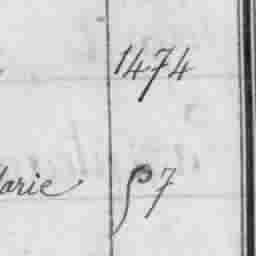 1474
Marie 97